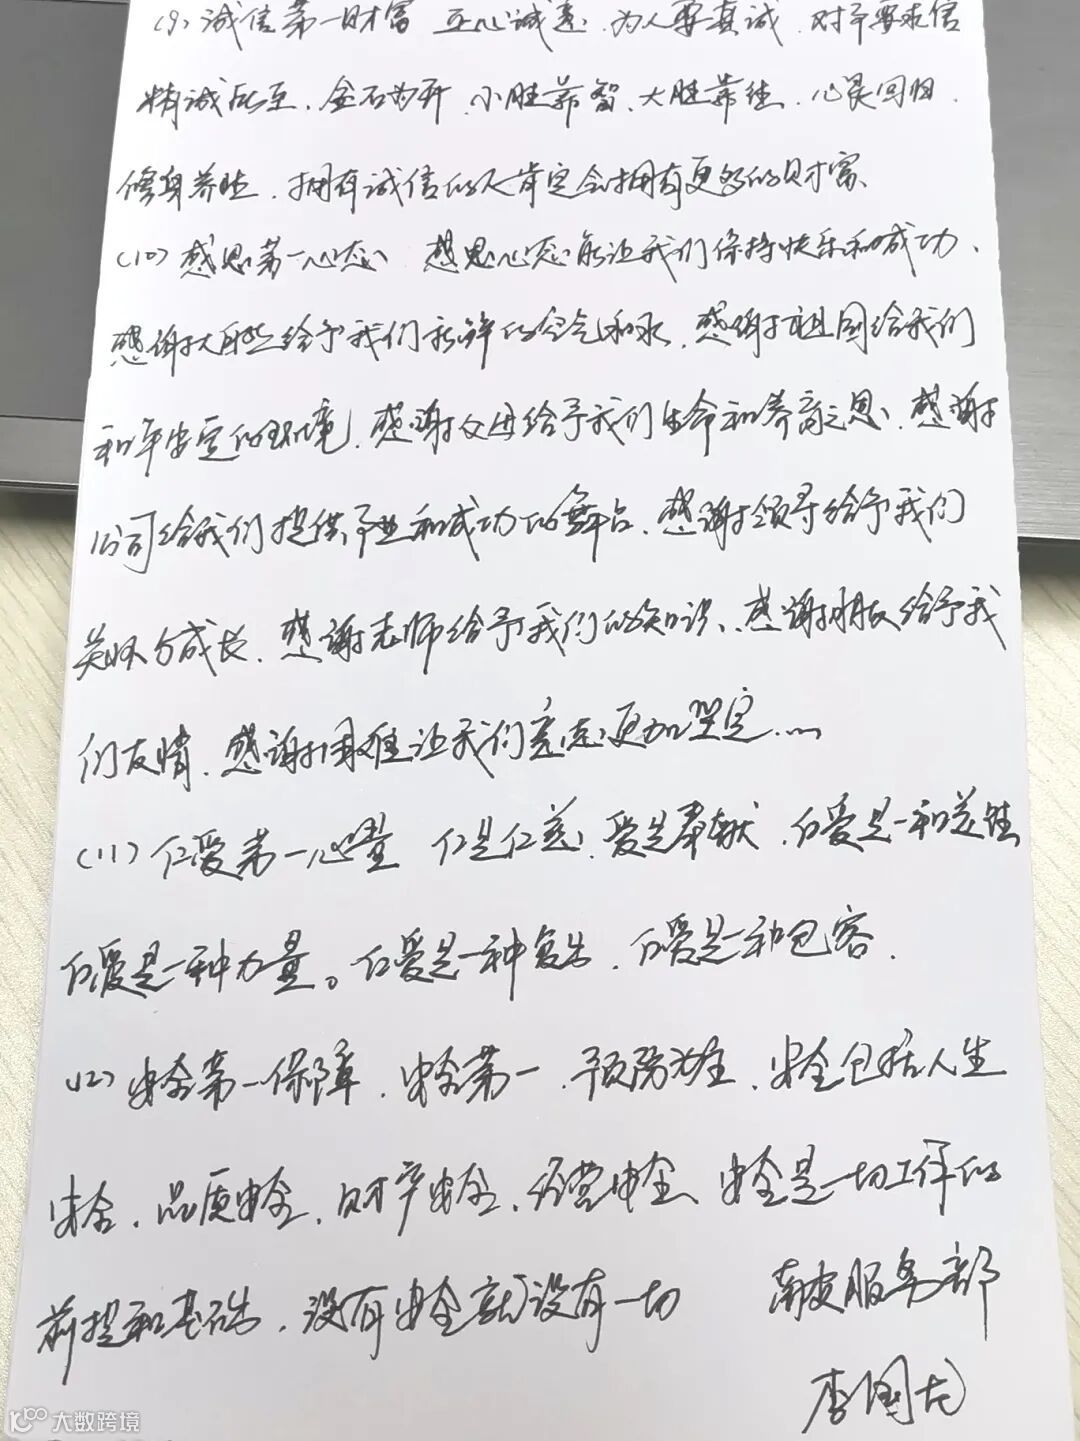 (9) 诚信第一财富 正心诚意、为人要真诚、对事要求信
精诚所至、金石为开、小胜靠智、大胜靠德、心灵回归、
修身养性、拥有诚信的人肯定会拥有更多的财富、
(10) 感恩第一心态 感恩心态能让我们保持快乐和成功、
感谢大自然给予我们新鲜的空气和水、感谢祖国给我们
和平安定的环境、感谢父母给予我们生命和养育之恩、感谢
公司给我们提供事业和成功的舞台、感谢领导给予我们
关怀与成长、感谢老师给予我们的知识、感谢朋友给予我
们友情、感谢困难让我们意志更加坚定……
(11) 仁爱第一心量 仁是仁慈、爱是奉献、仁爱是一种
仁爱是一种力量。仁爱是一种、仁爱是一种包容.
(12) 安全第一保障、安全第一、预防为主、安全包括人生
安全、品质安全、财产安全、经营安全、安全是一切工作的
前提和基础、没有安全就没有一切 南皮服务部
李国龙
大数跨境